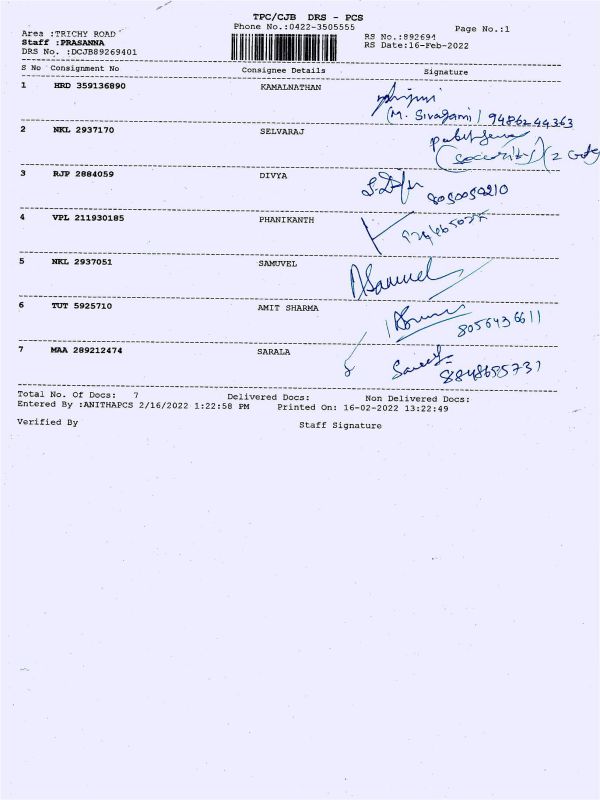 TPC/CJB DRS - PCS
Phone No.:0422-3505555
Page No.:1
Area :TRICHY ROAD
RS No.:892694
Staff :PRASANNA
RS Date:16-Feb-2022
DRS No. :DCJB89269401
S No Consignment No Consignee Details Signature
1 HRD 359136890 KAMALNATHAN
(M. Sivagami) 9486244363
2 NKL 2937170 SELVARAJ
(Security)
3 RJP 2884059 DIVYA
8050059210
4 VPL 211930185 PHANIKANTH
5 NKL 2937051 SAMUVEL
Samuel
6 TUT 5925710 AMIT SHARMA
8056436611
7 MAA 289212474 SARALA
Total No. Of Docs: 7 Delivered Docs: Non Delivered Docs:
Entered By :ANITHAPCS 2/16/2022 1:22:58 PM Printed On: 16-02-2022 13:22:49
Verified By Staff Signature